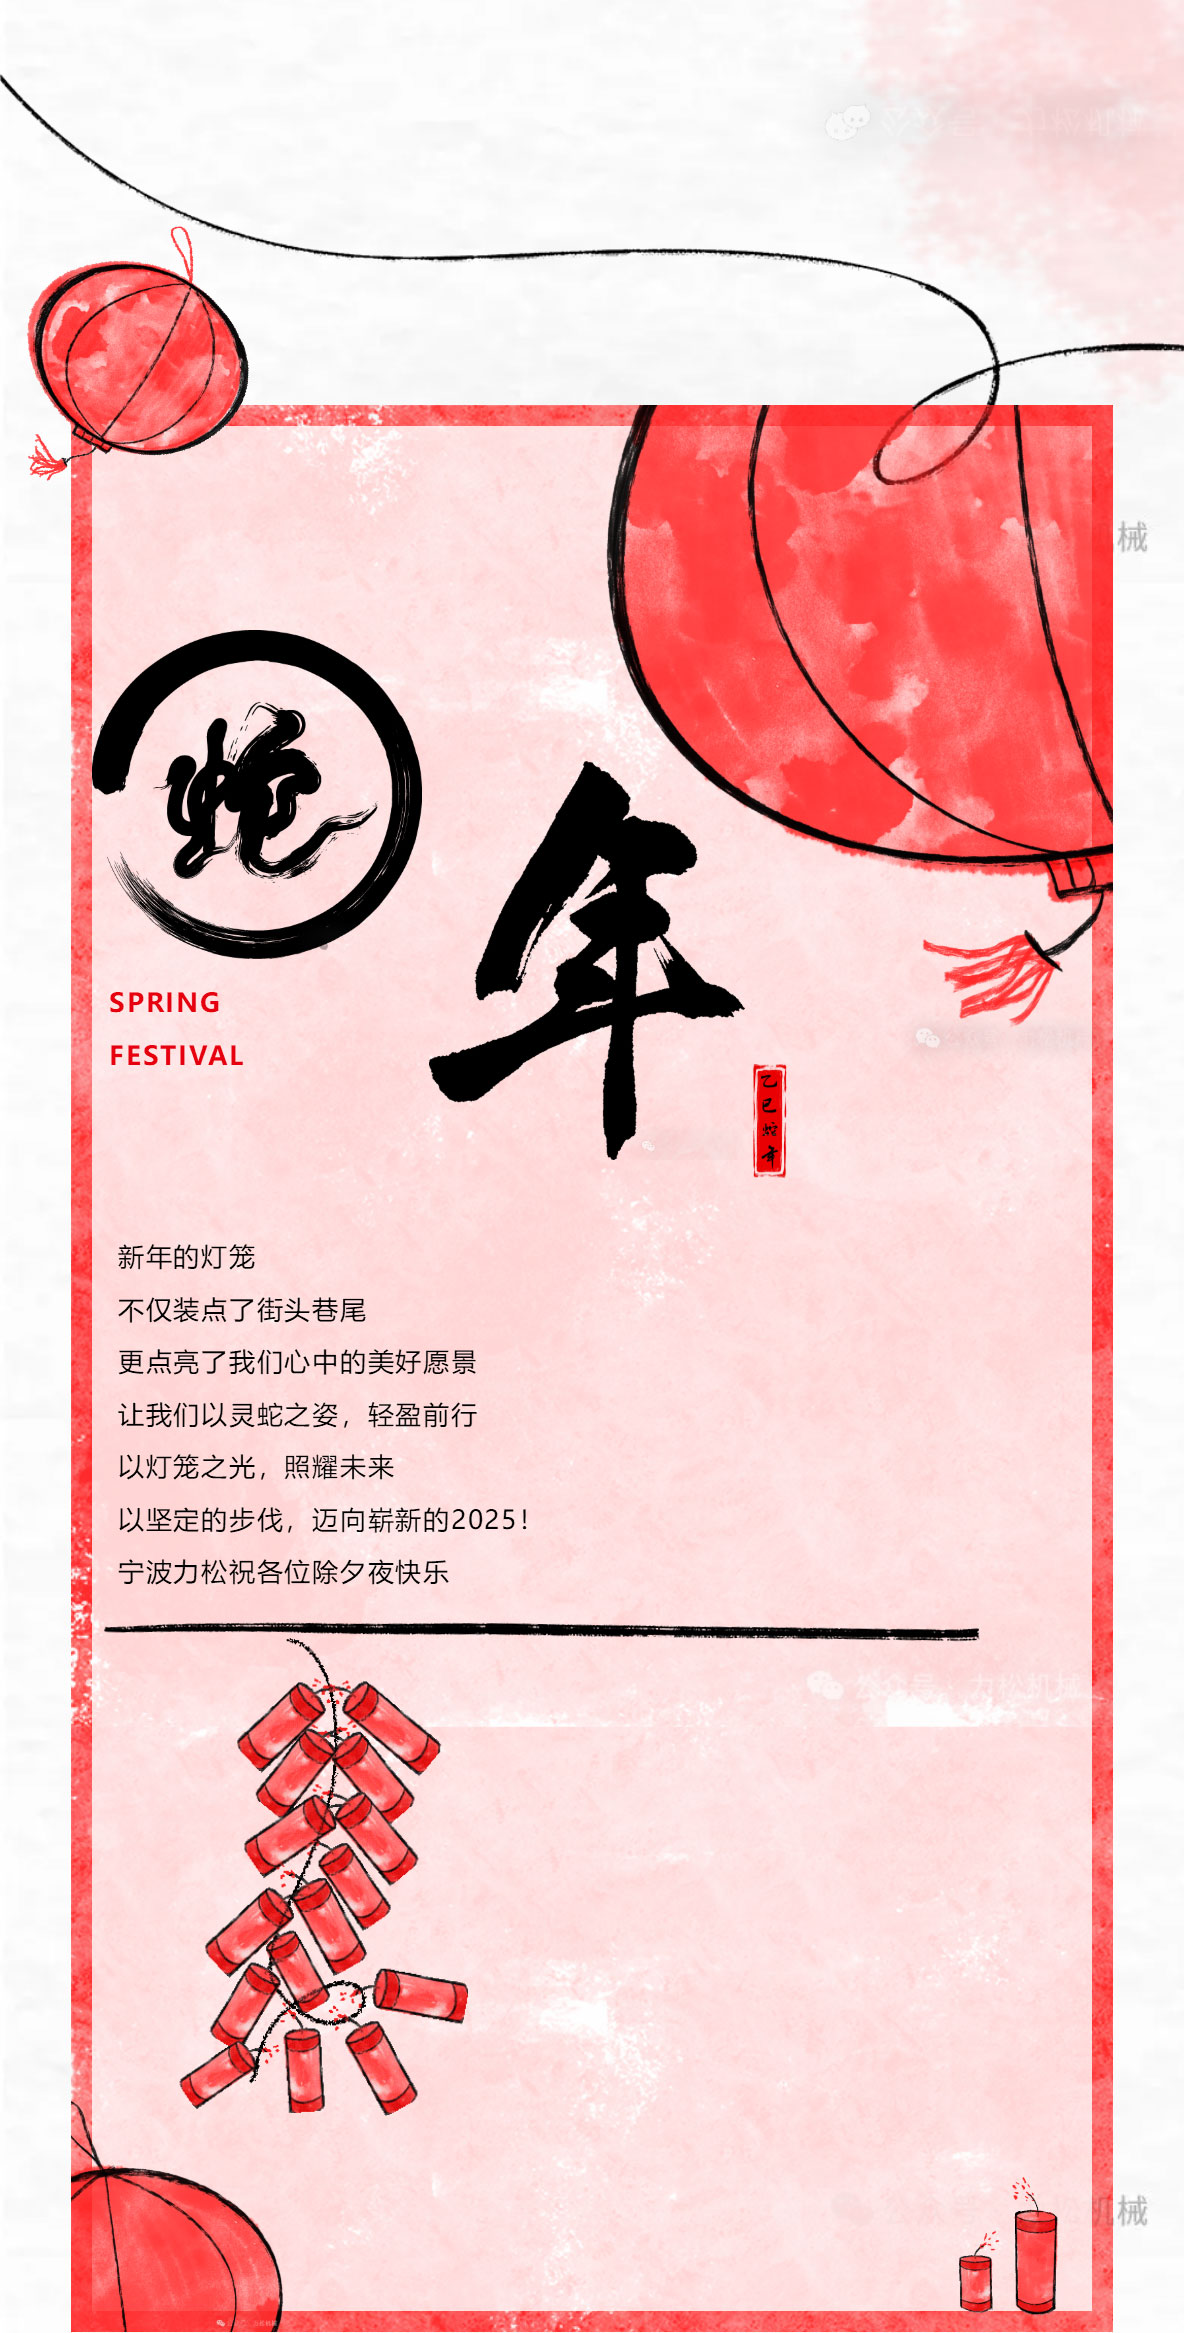 械
蛇
年
SPRING
FESTIVAL
乙巳蛇年
新年的灯笼
不仅装点了街头巷尾
更点亮了我们心中的美好愿景
让我们以灵蛇之姿，轻盈前行
以灯笼之光，照耀未来
以坚定的步伐，迈向崭新的2025！
宁波力松祝各位除夕夜快乐
公众号 力松机械
机械